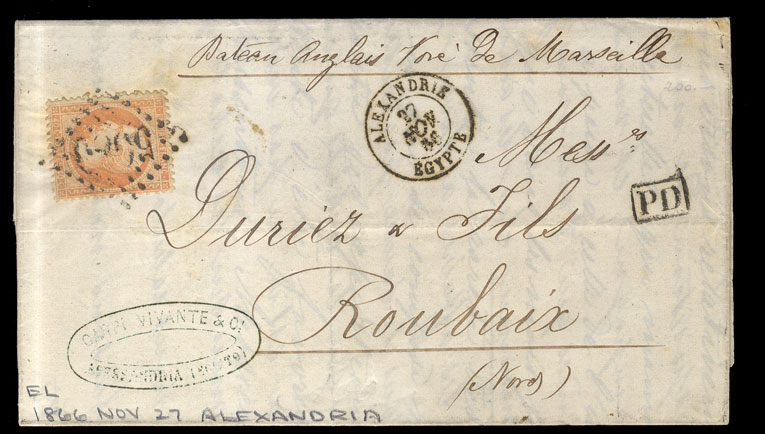 Bateau Anglais Voie de Marseille
ALEXANDRIE
27
NOV
66
EGYPTE
Mess.rs
PD
Duriez & Fils
Roubaix
(Nord)
VIVANTE & C!
ALESSANDRIA
EL
1866 NOV 27 ALEXANDRIA